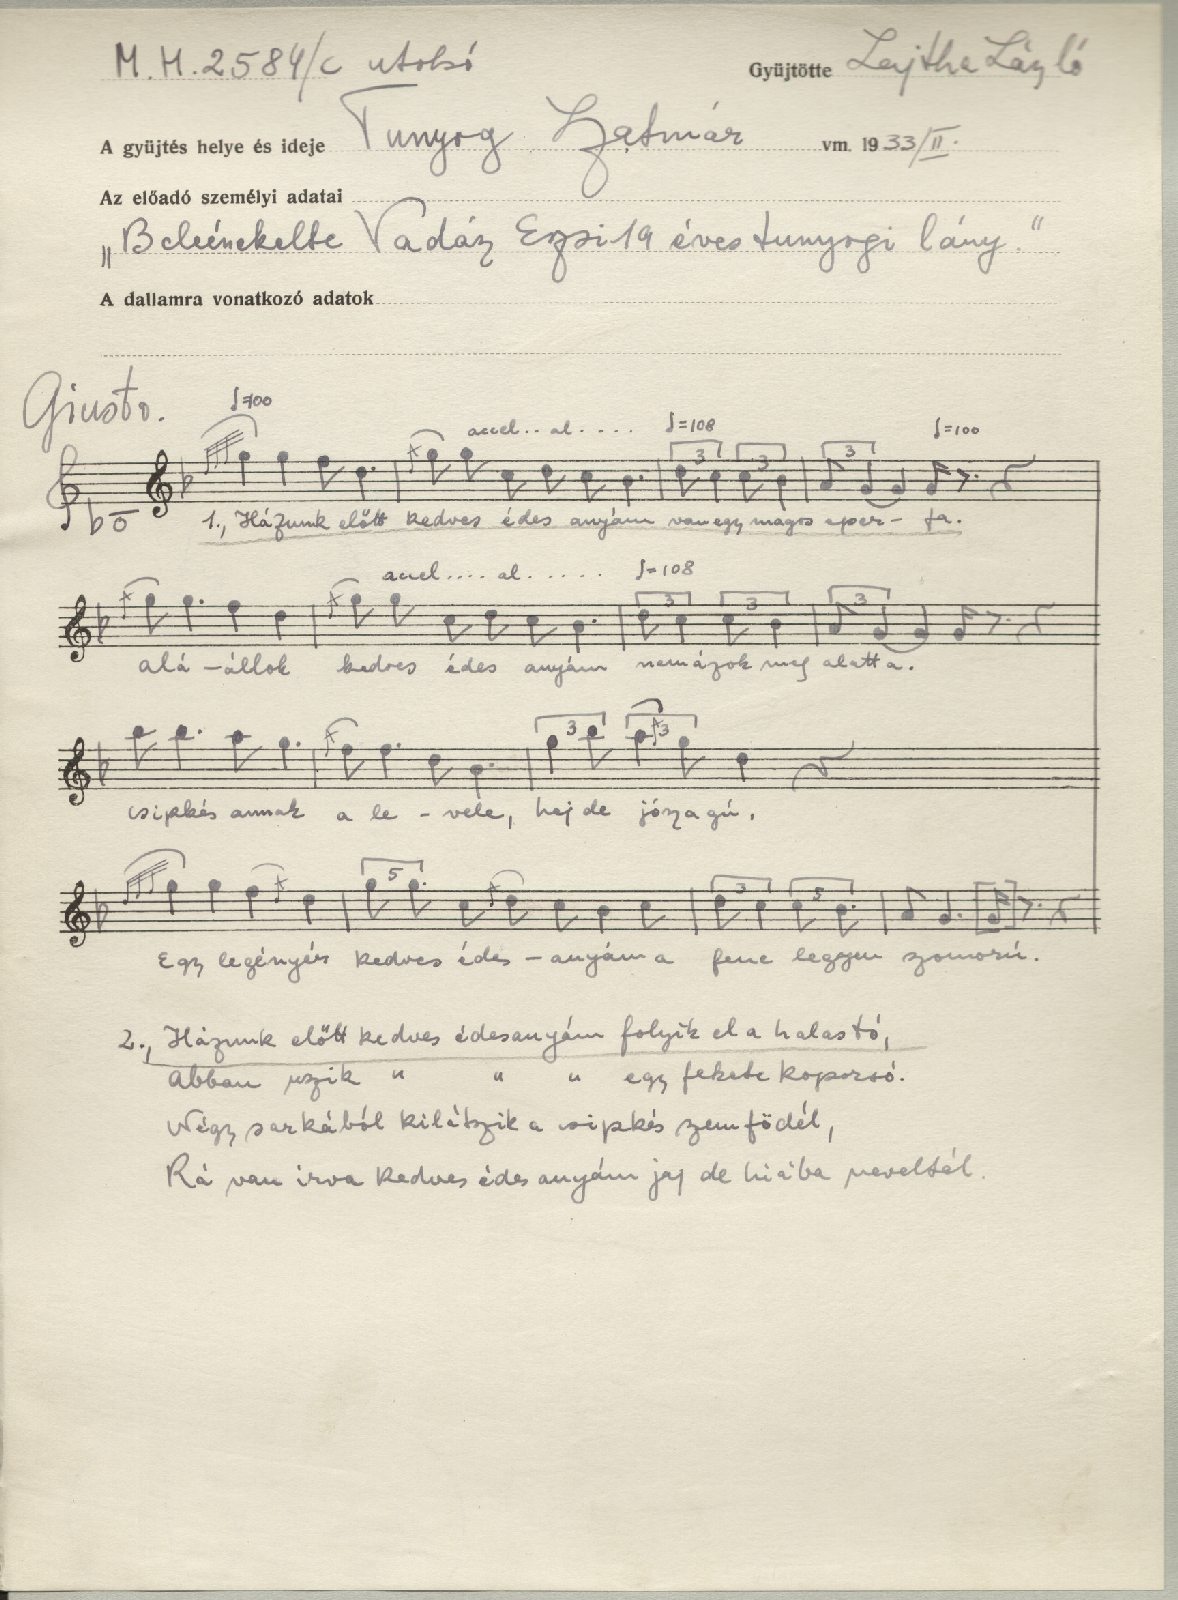 M.H.2584/c utolsó
Gyüjtötte Lajtha László
A gyüjtés helye és ideje Tunyog Szatmár vm. 1933/II.
Az előadó személyi adatai
„Beleénekelte Vadász Erzsi 19 éves tunyogi lány."
A dallamra vonatkozó adatok
Giusto. ♩=100
accel.. al.... ♩=108 ♩=100
3 3 3
1., Házunk előtt kedves édes anyám van egy magos eper-fa.
accel.... al..... ♩=108
3 3 3
alá-állok kedves édes anyám nem ázok meg alatta.
3 3
csipkés annak a le-vele, hej de jószagú.
5 3 5
Egy legényér kedves édes-anyám a fene legyen szomorú.
2., Házunk előtt kedves édesanyám folyik el a halastó,
Abban uszik " " " egy fekete koporsó.
Négy sarkából kilátszik a csipkés szemfödél,
Rá van irva kedves édes anyám jaj de hiába neveltél.